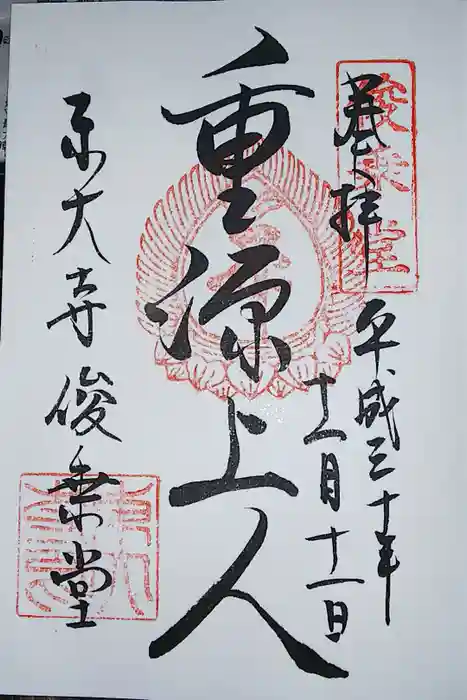 奉拝
俊乗堂
平成三十年
十二月十一日
重源上人
東大寺俊乗堂